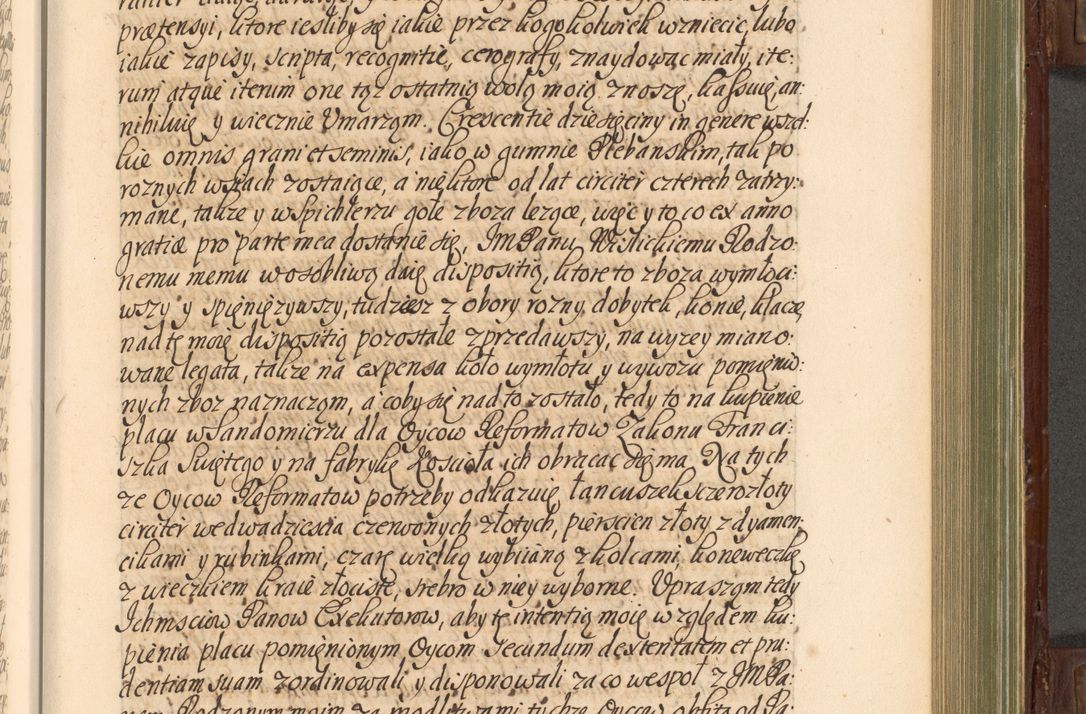 prætensyi, ktore iesliby się iakie przez kogokolwiek wzniecic, lubo
iakie zapisy, scripta, recognitie, cerografy, znaydowac miały, ite:
rum atque iterum one tąż ostatnią wolą moią znoszę, kassuię, an:
nihiluię y wiecznie Umarzam. Crescentie dziesięciny in genere wszel:
kie omnis grani et seminis, iako w gumnie Plebanskim, tak po
roznych wsiach zostaiące, a niektore od lat circiter czterech zatrzy:
mane, takze y w Spichlerzu gołe zboza lezące, więc y to, co ex anno
gratiæ pro parte mea dostanie się, JM Panu Wislickiemu Rodzo:
nemu memu w osobliwą daię dispositią, ktore to zboza wymłoci:
wszy y spięnięzywszy, tudziesz z obory rozny dobytek, konie, klacze,
nad tę moię dispositią pozostałe zprzedawszy, na wyzey miano:
wane legata, takze na expensa koło wymłotu y wywozu pomięnio:
nych zboz naznaczam, a coby się nad to zostało, tedy to na kupienie
placu w Sandomierzu dla Oycow Reformatow Zakonu Franci:
szka Swiętego y na fabrykę Koscioła ich obracac się ma. Na tych
ze Oycow Reformatow potrzeby odkazuię łancuszek szczerozłoty
circiter we dwadziescia czerwonych złotych, pierscien złoty z dyamen:
cikami y rubinkami, czarę wielką wybiianą z kolcami, koneweczkę
z wieczkiem kraie złociste, srebro w niey wyborne. Upraszam tedy
Ichmsciow Panow Exekutorow, aby tę intentią moię względem ku:
pienia placu pomięnionym Oycom secundum dexteritatem et pru:
dentiam suam zordinowali y disponowali za co wespoł z JM Pa:
nem Rodzonym moim za modlitwami tychze Oycow obfita od Pa: